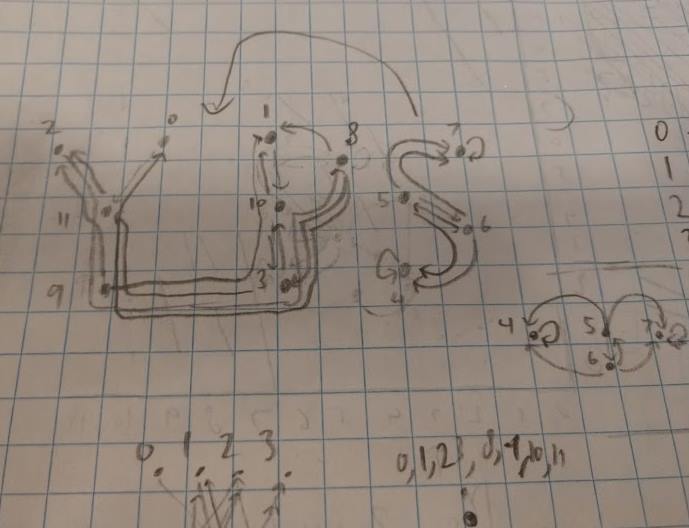 2 0 1 8 7
11 10 5 6
9 3 4
0
1
2
4 5 7
6
0 1 2 3
0,1,2, 8, 9, 10, 11